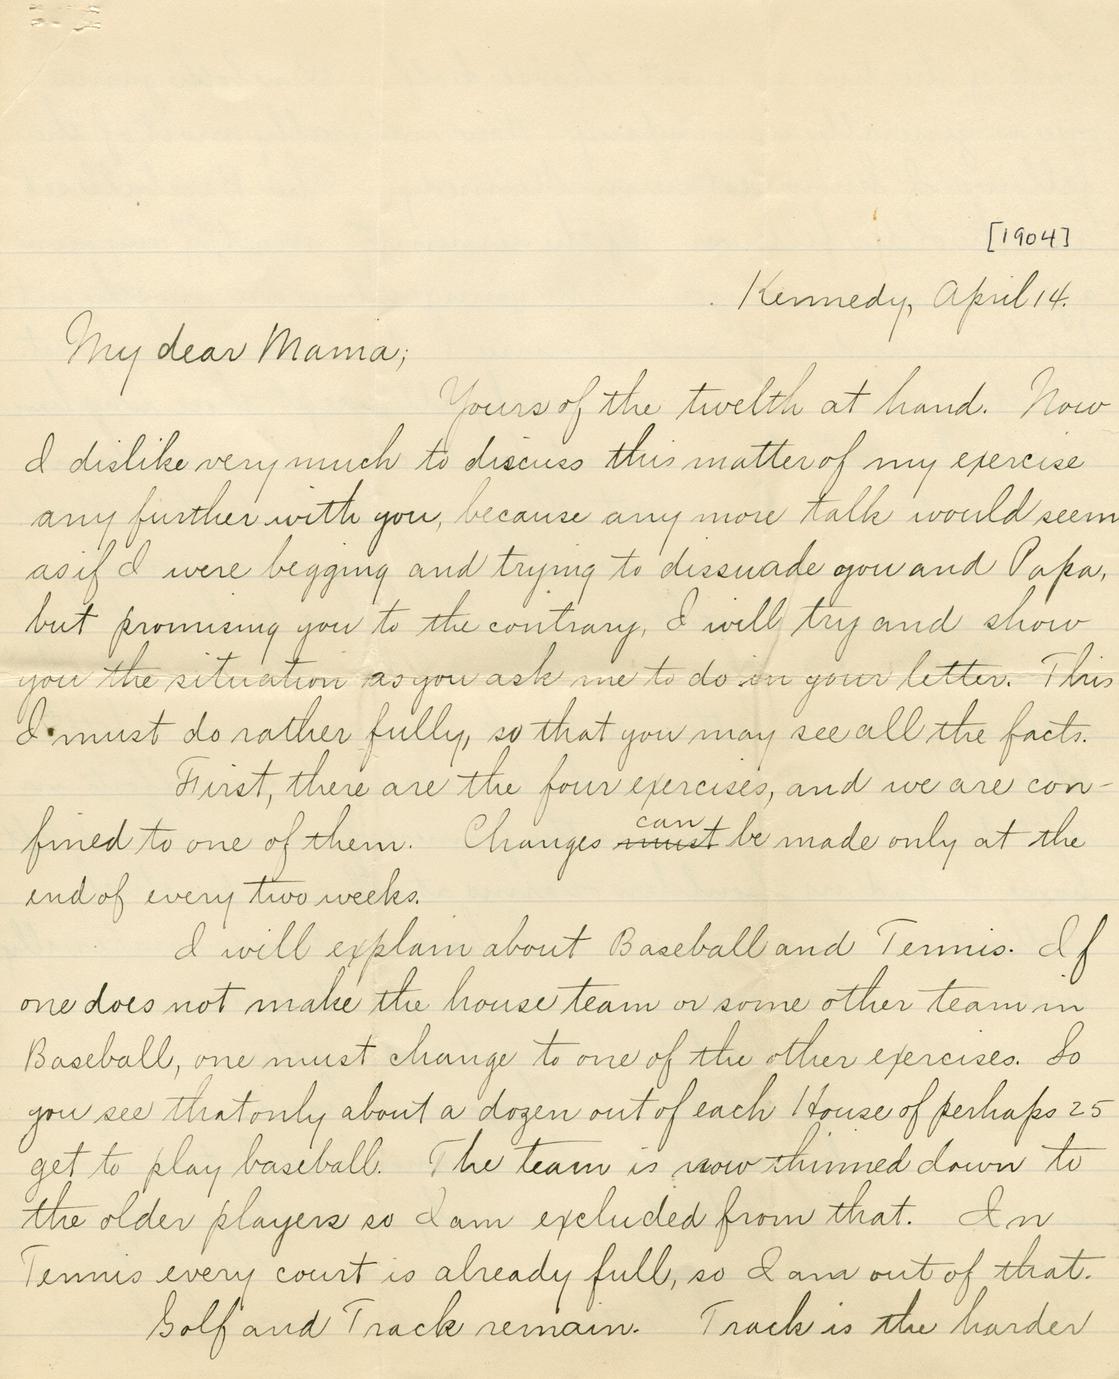 [1904]
Kennedy, April 14.
My dear Mama;
Yours of the twelth at hand. Now
I dislike very much to discuss this matter of my exercise
any further with you, because any more talk would seem
as if I were begging and trying to dissuade you and Papa,
but promising you to the contrary, I will try and show
you the situation as you ask me to do in your letter. This
I must do rather fully, so that you may see all the facts.
First, there are the four exercises, and we are con-
fined to one of them. Changes must can be made only at the
end of every two weeks.
I will explain about Baseball and Tennis. If
one does not make the house team or some other team in
Baseball, one must change to one of the other exercises. So
you see that only about a dozen out of each House of perhaps 25
get to play baseball. The team is now thinned down to
the older players so I am excluded from that. In
Tennis every court is already full, so I am out of that.
Golf and Track remain. Track is the harder